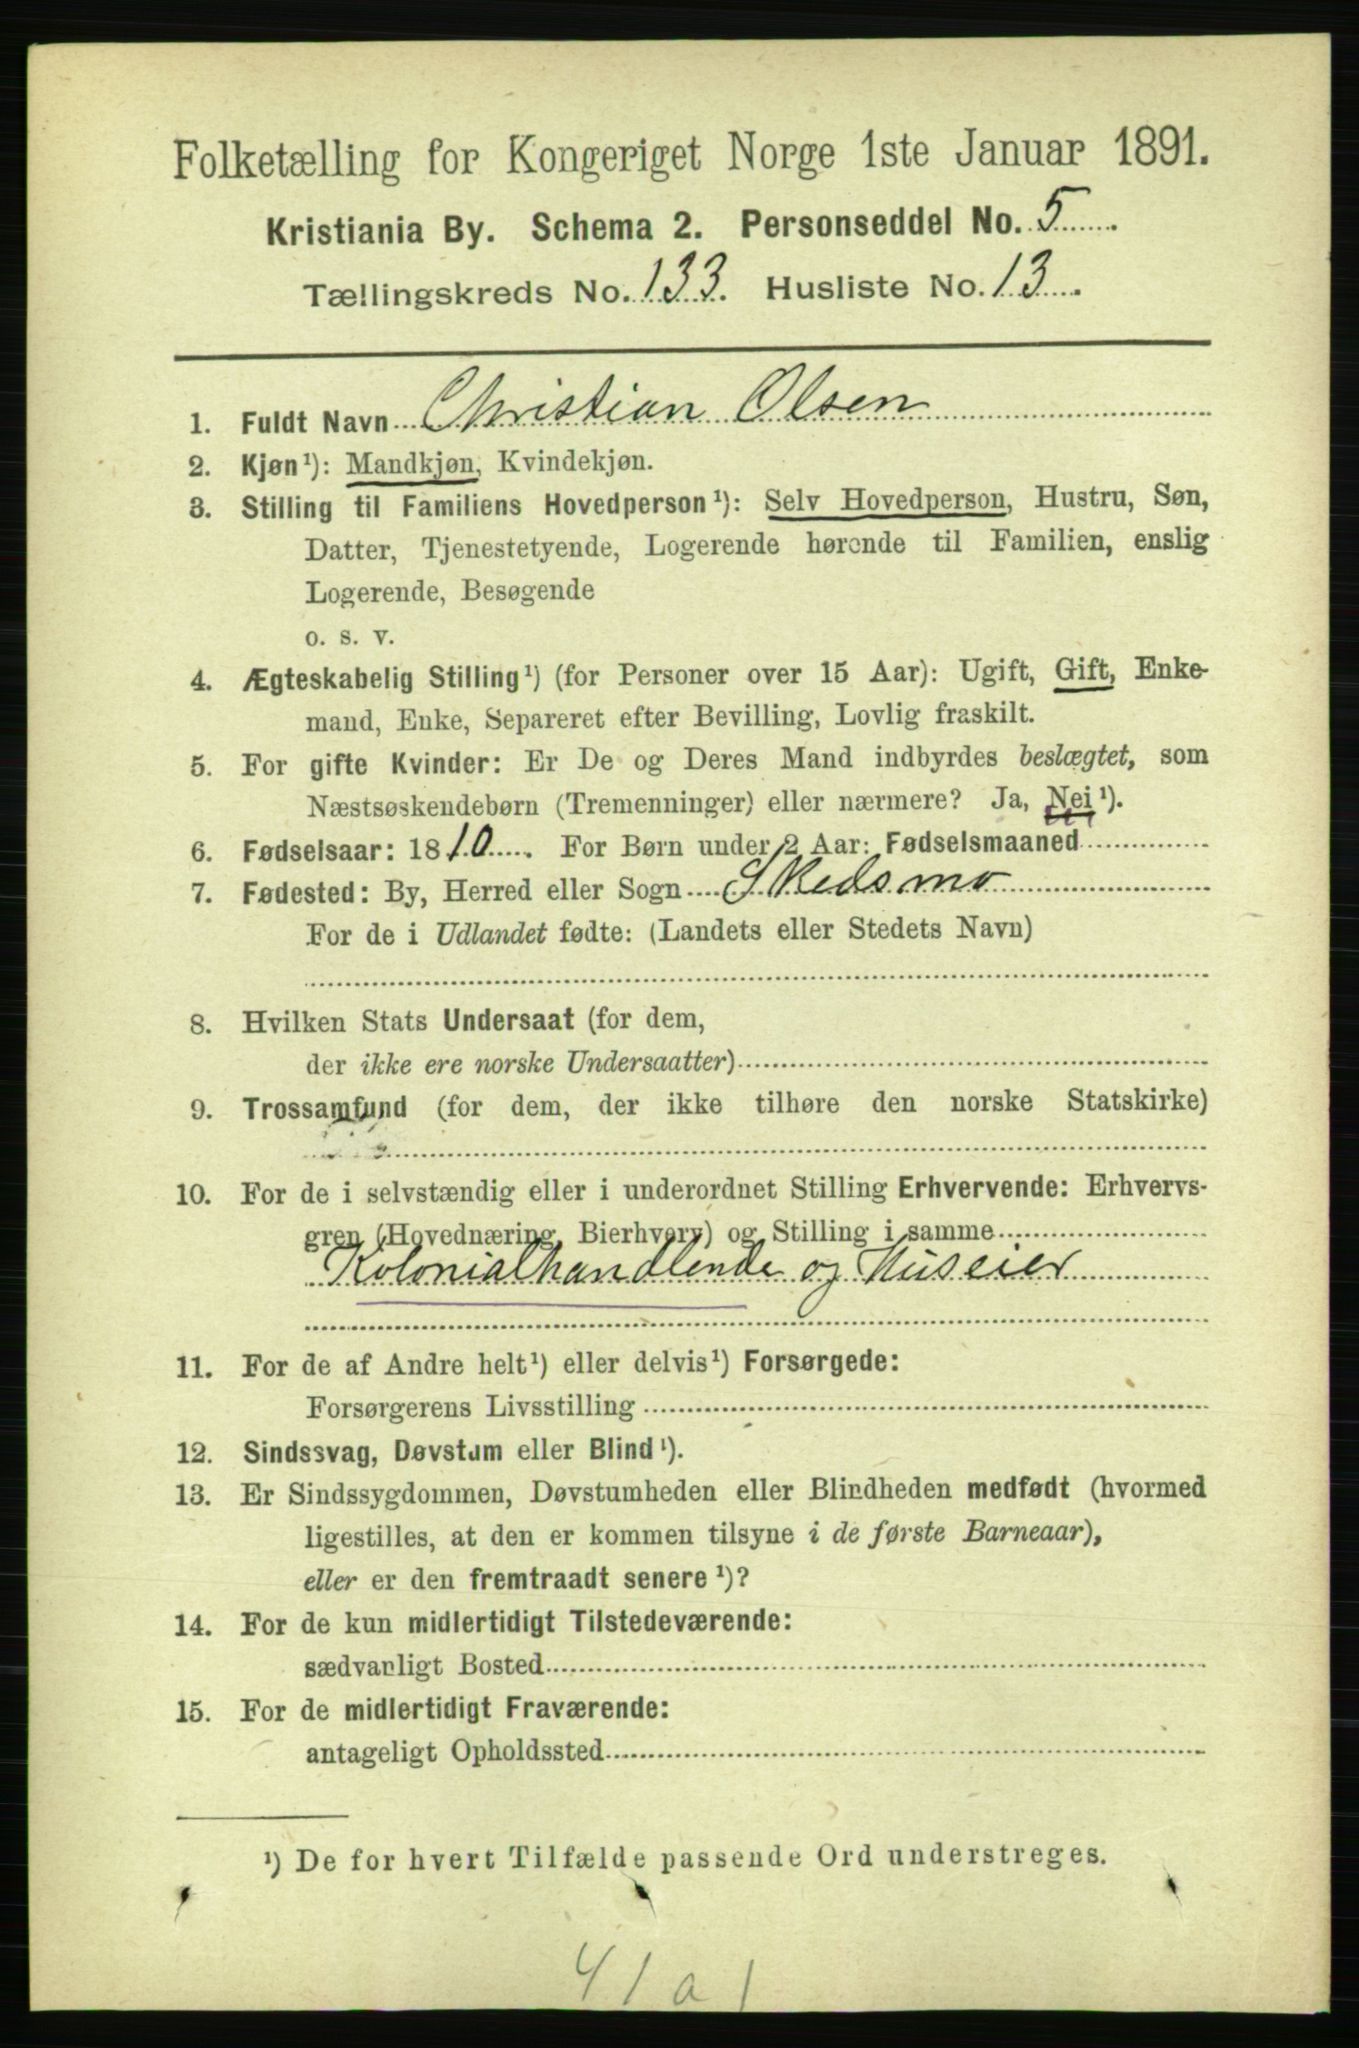 Folketælling for Kongeriget Norge 1ste Januar 1891.
Kristiania By. Schema 2. Personseddel No. 5
Tællingskreds No. 133. Husliste No. 13.
1. Fuldt Navn Christian Olsen
2. Kjøn¹): Mandkjøn, Kvindekjøn.
3. Stilling til Familiens Hovedperson¹): Selv Hovedperson, Hustru, Søn,
Datter, Tjenestetyende, Logerende hørende til Familien, enslig
Logerende, Besøgende
o. s. v.
4. Ægteskabelig Stilling¹) (for Personer over 15 Aar): Ugift, Gift, Enke-
mand, Enke, Separeret efter Bevilling, Lovlig fraskilt.
5. For gifte Kvinder: Er De og Deres Mand indbyrdes beslægtet, som
Næstsøskendebørn (Tremenninger) eller nærmere? Ja, Nei¹).
6. Fødselsaar: 1810. For Børn under 2 Aar: Fødselsmaaned
7. Fødested: By, Herred eller Sogn Skedsmo
For de i Udlandet fødte: (Landets eller Stedets Navn)
8. Hvilken Stats Undersaat (for dem,
der ikke ere norske Undersaatter)
9. Trossamfund (for dem, der ikke tilhøre den norske Statskirke)
10. For de i selvstændig eller i underordnet Stilling Erhvervende: Erhvervs-
gren (Hovednæring, Bierhverv) og Stilling i samme
Kolonialhandlende og Huseier
11. For de af Andre helt¹) eller delvis¹) Forsørgede:
Forsørgerens Livsstilling
12. Sindssvag, Døvstum eller Blind¹).
13. Er Sindssygdommen, Døvstumheden eller Blindheden medfødt (hvormed
ligestilles, at den er kommen tilsyne i de første Barneaar),
eller er den fremtraadt senere¹)?
14. For de kun midlertidigt Tilstedeværende:
sædvanligt Bosted
15. For de midlertidigt Fraværende:
antageligt Opholdssted
¹) De for hvert Tilfælde passende Ord understreges.
41 a 1